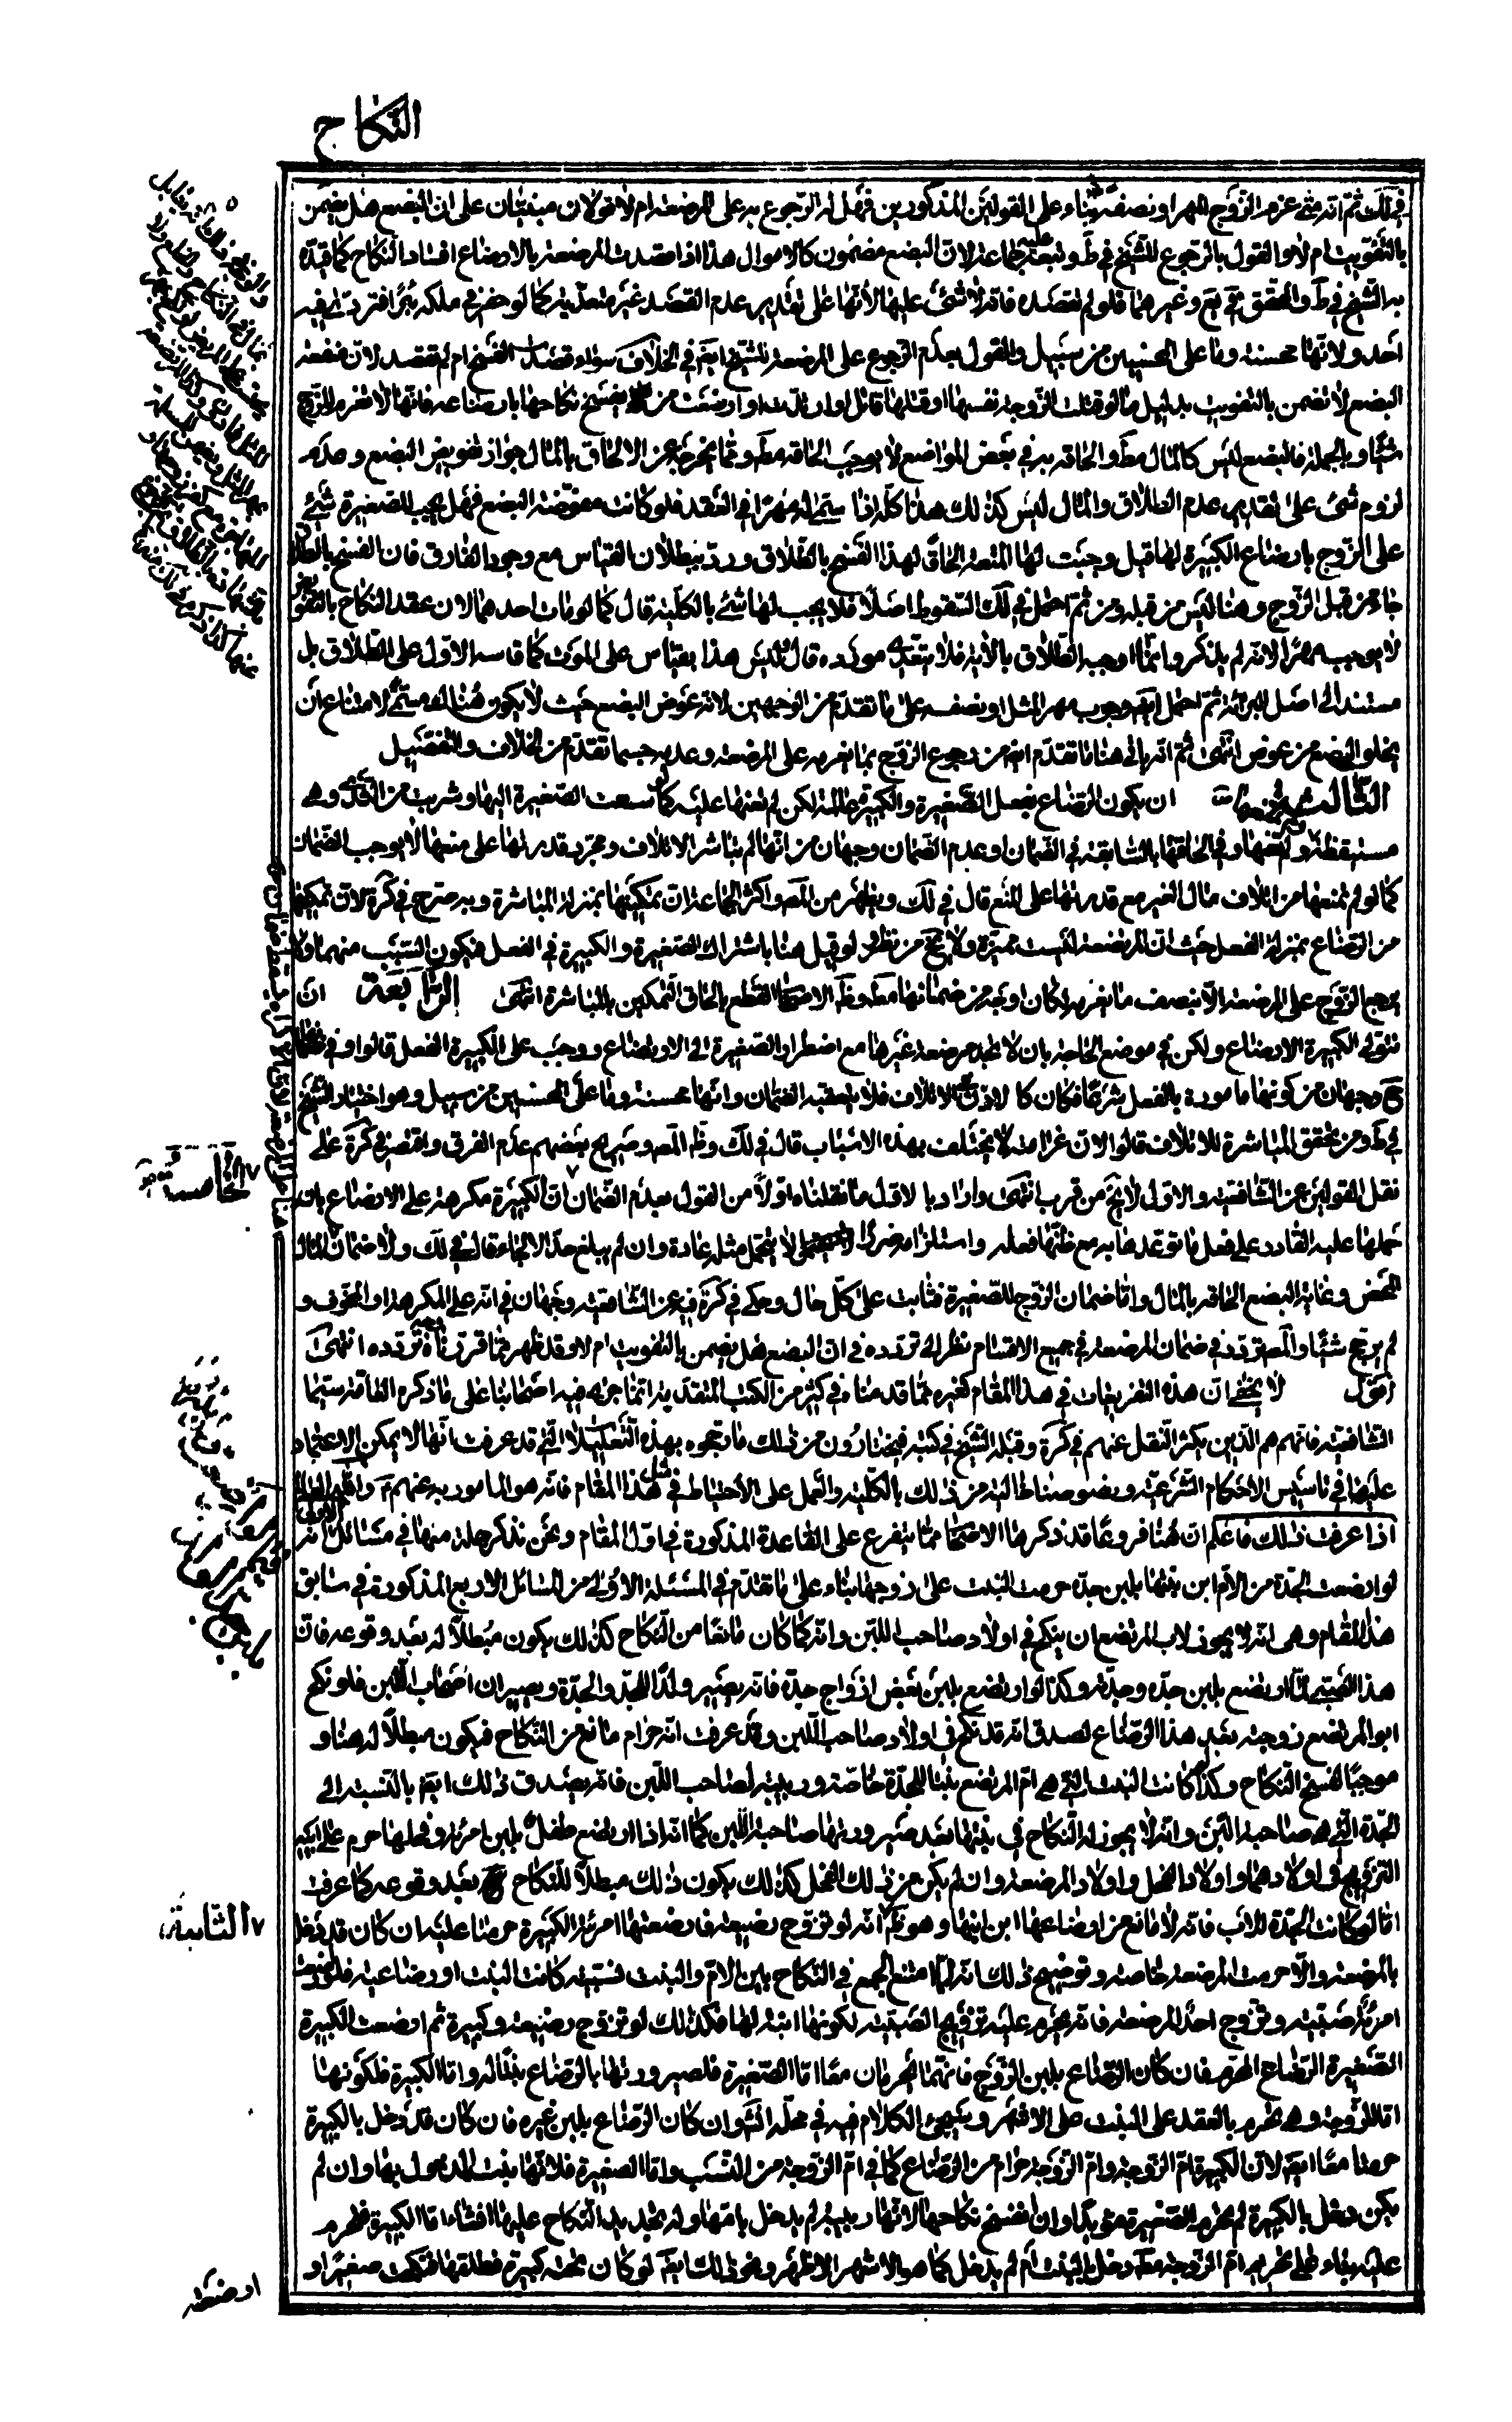 النكاح
في لك ثم انه متى غرم الزوج المهر او نصفه بناء على القولين المذكورين فهل له الرجوع به على المرضعة ام لا قولان مبنيان على ان البضع هل يضمن
بالتفويت ام لا والقول بالرجوع للشيخ في ط وتبعه عليه جماعة لان البضع مضمون كالاموال هذا اذا قصدت المرضعة بالارضاع افساد النكاح كما قيده
به الشيخ في ط والمحقق في يع وغيرهما فلو لم تقصده فانه لا شئ عليها لانها على تقدير عدم القصد غير متعدية كما لو حفر في ملكه بئرا فتردى فيه
احد ولانها محسنة وما على المحسنين من سبيل والقول بعدم الرجوع على المرضعة للشيخ ايضا في الخلاف سواء قصدت الفسخ ام لم تقصد لان منفعة
البضع لا تضمن بالتفويت بدليل ما لو قتلت الزوجة نفسها او قتلها قاتل او ارتدت او ارضعت من ينفسخ نكاحها بارضاعه فانها لا تغرم للزوج
شيئا وبالجملة فالبضع ليس كالمال مط والحاقه به في بعض المواضع لا يوجب الحاقه مط ومما يخرجه عن الالحاق بالمال جواز تفويض البضع وعدم
لزوم شئ على تقدير عدم الطلاق والمال ليس كذلك هذا كله اذا سمى له مهرا في العقد فلو كانت مفوضة البضع فهل يجب للصغيرة شئ
على الزوج بارضاع الكبيرة لها قيل وجبت لها المتعة الحاقا لهذا الفسخ بالطلاق ورد ببطلان القياس مع وجود الفارق فان الفسخ بالطلاق
جاء من قبل الزوج وهنا ليس من قبله ومن ثم احتمل في لك السقوط اصلا فلا يجب لها شئ بالكلية قال كما لو مات احدهما لان عقد النكاح بالتفويض
لا يوجب مهرا لانه لم يذكر وانما اوجبه الطلاق بالاية فلا يتعدى مورده قال وليس هذا بقياس على الموت كما قاسه الاول على الطلاق بل
مستند الى اصل البرائة ثم احتمل ايضا وجوب مهر المثل او نصفه على ما تقدم من الوجهين لانه عوض البضع حيث لا يكون هناك مسمى لامتناع ان
يخلو البضع من عوض انتهى ثم انه ياتي هنا ما تقدم ايضا من رجوع الزوج بما يغرمه على المرضعة وعدمه حسبما تقدم من الخلاف والتفصيل
الثالث ان يكون الرضاع بفعل الصغيرة والكبيرة عالمة لكن لم تعنها عليه كما لو سعت الصغيرة اليها وشربت من الثدى وهي
مستيقظة ولم تمنعها وفي الحاقها بالسابقة في الضمان او عدم الضمان وجهان من انها لم تباشر الاتلاف ومجرد قدرتها على منعها لا يوجب الضمان
كما لو لم تمنعها من اتلاف مال الغير مع قدرتها على المنع قال في لك ويظهر من المص واكثر الجماعة ان تمكينها بمنزلة المباشرة وبه صرح في كره لان تمكينها
من الرضاع بمنزلة الفعل حيث ان المرتضعة ليست مميزة ولا يخ من نظر ولو قيل هنا باشتراك الصغيرة والكبيرة في الفعل فيكون السبب منهما ولا
يرجع الزوج على المرضعة الا بنصف ما يغرمه لكان اوجه من ضمانها مط وظ الاصحاب القطع بالحاق التمكين بالمباشرة انتهى الرابعة ان
تتولى الكبيرة الارضاع ولكن في موضع الحاجة بان لا تجد مرضعة غيرها مع اضطرار الصغيرة الى الارضاع ووجب على الكبيرة الفعل قالوا وفي ضمانها
ح وجهان من كونها مامورة بالفعل شرعا فكان كالاذن في الاتلاف فلا يتعقبه الضمان وانها محسنة وما على المحسنين من سبيل وهو اختيار الشيخ
في ط ومن تحقق المباشرة للاتلاف قالوا لان غرامته لا يختلف بهذه الاسباب قال في لك وظ المص وصريح بعضهم عدم الفرق واقتصر في كره على
نقل القولين عن الشافعية والاول لا يخ من قرب انتهى واراد بالاول ما نقلناه اولا من القول بعدم الضمان ان الكبيرة مكرهة على الارضاع بان
حملها عليه القادر على فعل ما توعدها به مع ظنها فعله واستلزامه ضررا لا يتحمل مثله عادة وان لم يبلغ حد الالجاء قال في لك ولا ضمان للمال
المحض وغاية البضع الحاقه بالمال واما ضمان الزوج للصغيرة فثابت على كل حال وحكى في كره فيه عن الشافعية وجهان في انه على المكرهة او المخوف و
لم يرجح شيئا والمص تردد في ضمان المرضعة في جميع الاقسام نظرا الى تردده في ان البضع هل يضمن بالتفويت ام لا وقد ظهر مما قررناه وجه تردده انتهى
اقول لا يخفى ان هذه التفريعات في هذا المقام كغيره مما قدمناه في كثير من الكتب المتقدمة انما جرى فيه اصحابنا على ما ذكره العامة سيما
الشافعية فانهم هم الذين يكثر النقل عنهم في كره وقبله الشيخ في كتبه فيختارون من ذلك ما رجحوه بهذه التعليلات التي قد عرفت انها لا يمكن الاعتماد
عليها في تاسيس الاحكام الشرعية ونصوصنا خالية من ذلك بالكلية والعمل على الاحتياط في مثل هذا المقام فانه هو المامور به عنهم ع والله العالم
اذا عرفت ذلك فاعلم ان هنا فروعا قد ذكرها الاصحاب مما يتفرع على القاعدة المذكورة في اول المقام ونحن نذكر جملة منها في مسائل الاولى انه
لو ارضعت الجدة من الام ابن بنتها بلبن جده حرمت البنت على زوجها بناء على ما تقدم في المسئلة الاولى من المسائل الاربع المذكورة في سابق
هذا المقام وهي انه لا يجوز لاب المرتضع ان ينكح في اولاد صاحب اللبن وانه كما كان مانعا من النكاح كذلك يكون مبطلا له بعد وقوعه فان
هذا الصبي لما ارتضع بلبن جده وجدته وكذا لو ارتضع بلبن بعض ازواج جده فانه يصير ولدا للجد والجدة ويصيران اصحاب اللبن فلو نكح
ابو المرتضع زوجته بعد هذا الرضاع لصدق انه قد نكح في اولاد صاحب اللبن وقد عرفت انه حرام مانع من النكاح فيكون مبطلا له هنا و
موجبا لفسخ النكاح وكذا لو كانت البنت التي هي ام المرتضع بنتا للجدة خاصة وربيبة لصاحب اللبن فانه يصدق ذلك ايضا بالنسبة الى
الجدة التي هي صاحبة اللبن وانه لا يجوز له النكاح في بنتها بعد صيرورتها صاحبة اللبن كما انه اذا ارتضع طفل بلبن امرئة وفحلها حرم على ابيه
التزويج في اولادهما واولاد الفحل واولاد المرضعة وان لم يكن من ذلك الفحل كذلك يكون ذلك مبطلا للنكاح بعد وقوعه كما عرفت
اما لو كانت الجدة للاب فانه لا مانع من ارضاعها ابن ابنها وهو ظ انه لو تزوج رضيعة فارضعتها امرئته الكبيرة حرمتا عليه ان كان قد دخل
بالمرضعة والا حرمت المرضعة خاصة وتوضيح ذلك انه لما امتنع الجمع في النكاح بين الام والبنت نسبية كانت البنت او رضاعية فلو ارضعت
امرئة صبية وتزوج احد المرضعة فانه يحرم عليه تزويج الصبية لكونها ابنة لها فكذلك لو تزوج رضيعة وكبيرة ثم ارضعت الكبيرة
الصغيرة الرضاع المحرم فان كان الرضاع بلبن الزوج فانهما تحرمان معا اما الصغيرة فلصيرورتها بالرضاع بنتا له واما الكبيرة فلكونها
اما للزوجة وهي تحرم بالعقد على البنت على الاشهر ويجئ الكلام فيه في محله انش وان كان الرضاع بلبن غيره فان كان قد دخل بالكبيرة
حرمتا معا ايضا لان الكبيرة ام الزوجة وام الزوجة حرام من الرضاع كما في ام الزوجة من النسب واما الصغيرة فلانها بنت المدخول بها وان لم
يكن دخل بالكبيرة لم تحرم الصغيرة مؤبدا وان انفسخ نكاحها لانها ربيبة لم يدخل بامها وله تجديد النكاح عليها ان شاء اما الكبيرة فتحرم
عليه بناء على تحريم ام الزوجة مط دخل بالبنت ام لم يدخل كما هو الاشهر الاظهر ونحو ذلك ايضا لو كان تحته كبيرة فطلقها فنكحت صغيرا و
الخامسة
الثانية
ارضعته